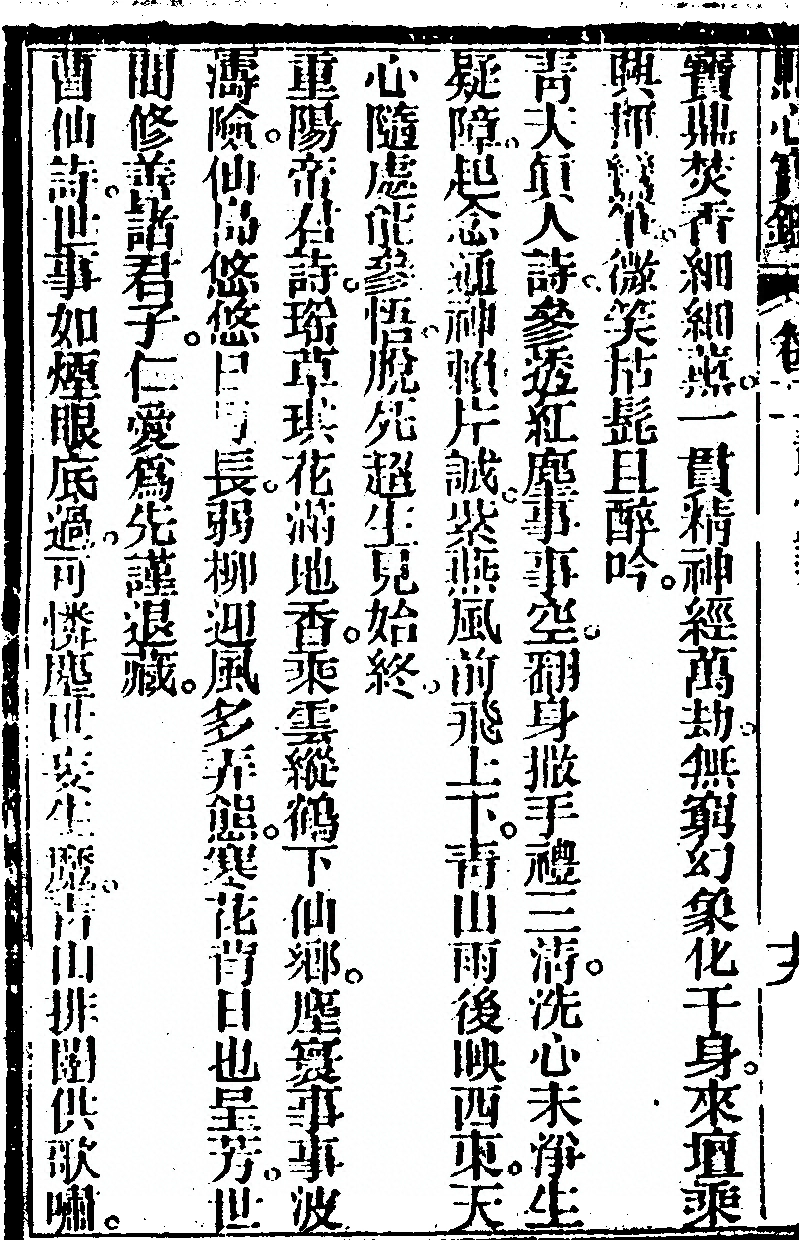 照心寶鑑
寶鼎焚香細細薰。一貫精神經萬劫。無窮幻象化千身。來壇乘
興揮鸞筆。微笑拈髭且醉吟。
青天眞人詩。參透紅塵事事空。翻身撒手禮三淸。洗心未淨生
疑障。起念通神賴片誠。紫燕風前飛上下。靑山雨後映西東。天
心隨處能參悟。脫死超生見始終。
重陽帝君詩。瑤草琪花滿地香。乘雲縱鶴下仙鄕。塵寰事事波
濤險。仙島悠悠日月長。弱柳迎風多弄態。寒花背日也呈芳。世
間修善諸君子。仁愛爲先謹退藏。
曹仙詩。世事如煙眼底過。可憐塵世妄生魔。靑山排闥供歌嘯。